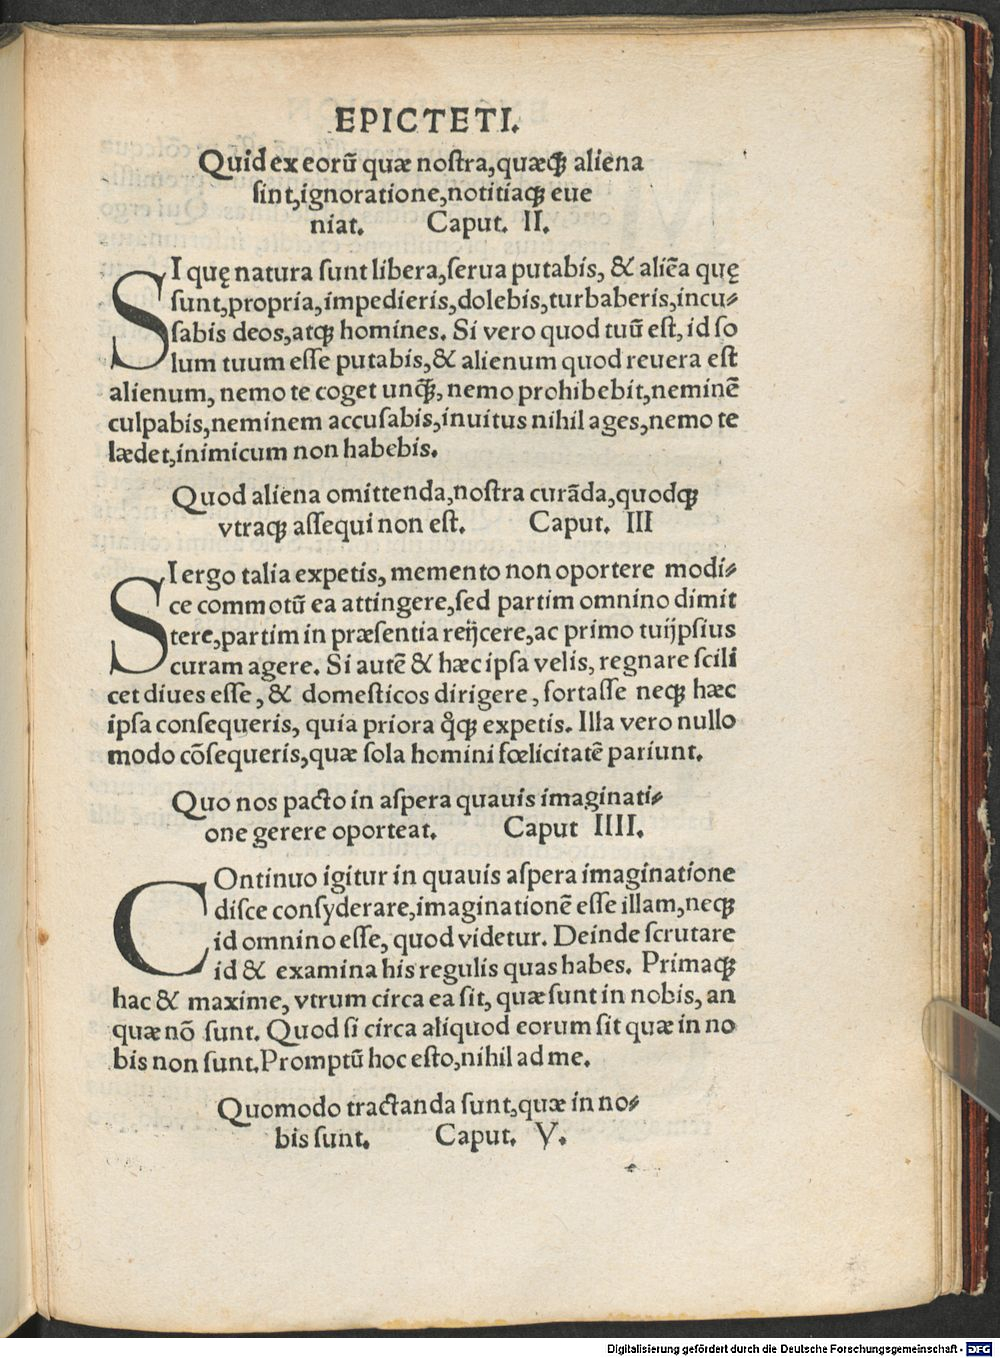 EPICTETI.
Quid ex eorũ quæ nostra, quæqꝫ aliena
sint, ignoratione, notitiaqꝫ eue
niat. Caput. II.
SI quę natura sunt libera, serua putabis, & aliẽa quę
sunt, propria, impedieris, dolebis, turbaberis, incu⸗
sabis deos, atqꝫ homines. Si vero quod tuũ est, id so
lum tuum esse putabis, & alienum quod reuera est
alienum, nemo te coget unqꝫ̃, nemo prohibebit, neminẽ
culpabis, neminem accusabis, inuitus nihil ages, nemo te
lædet, inimicum non habebis.
Quod aliena omittenda, nostra curãda, quodqꝫ
vtraqꝫ assequi non est. Caput. III
SI ergo talia expetis, memento non oportere modi⸗
ce commotũ ea attingere, sed partim omnino dimit
tere, partim in præsentia reijcere, ac primo tuijpsius
curam agere. Si autẽ & hæc ipsa velis, regnare scili
cet diues esse, & domesticos dirigere, fortasse neqꝫ hæc
ipsa consequeris, quia priora q̊qꝫ expetis. Illa vero nullo
modo cõsequeris, quæ sola homini fœlicitatẽ pariunt.
Quo nos pacto in aspera quauis imaginati⸗
one gerere oporteat. Caput IIII.
COntinuo igitur in quauis aspera imaginatione
disce consyderare, imaginationẽ esse illam, neqꝫ
id omnino esse, quod videtur. Deinde scrutare
id & examina his regulis quas habes. Primaqꝫ
hac & maxime, vtrum circa ea sit, quæ sunt in nobis, an
quæ nõ sunt. Quod si circa aliquod eorum sit quæ in no
bis non sunt. Promptũ hoc esto, nihil ad me.
Quomodo tractanda sunt, quæ in no⸗
bis sunt. Caput. V.
Digitalisierung gefördert durch die Deutsche Forschungsgemeinschaft - DFG